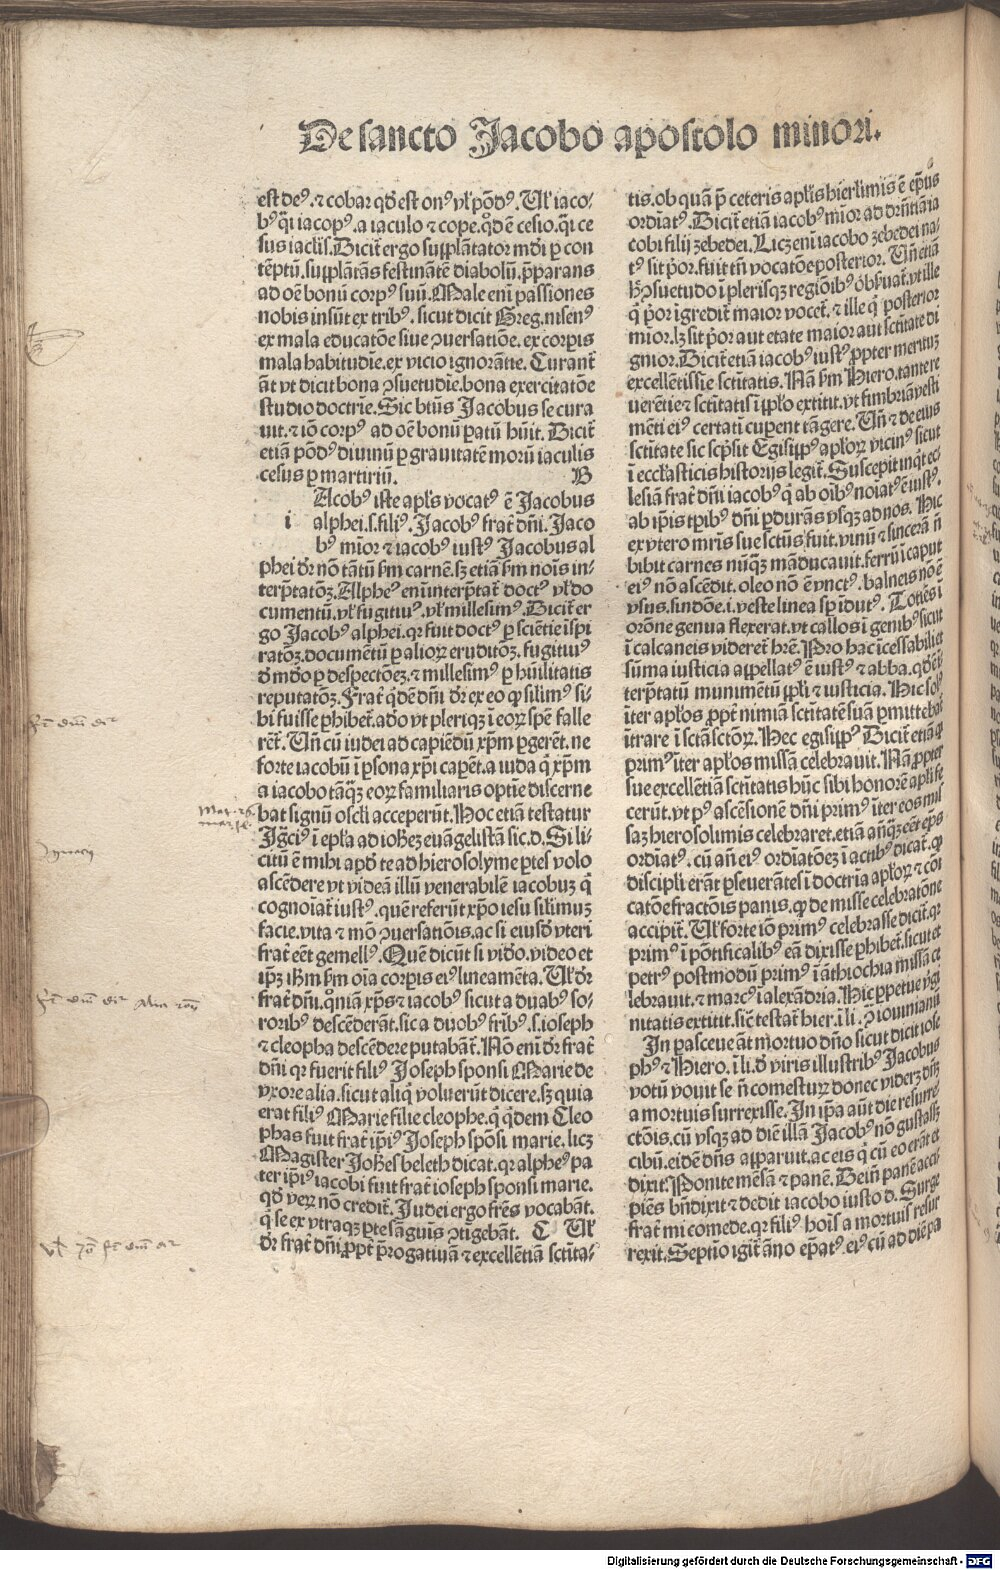 De sancto Jacobo apostolo minori.
est de⁹. ⁊ cobar qd̓ est on⁹ vl̓ põd⁹. Vl̓ iaco-
b⁹ q̃i iacop⁹. a iaculo ⁊ cope. qd̓ ē cesio. q̃i ce
sus iacl̓is. Dicit̃ ergo supplantator mũdi ꝑ con
tēptū. supplātās festinātē diabolū. p̃parans
ad oē bonū corp⁹ suū. Male eni passiones
nobis insūt ex trib⁹. sicut dicit Greg. nisen⁹
ex mala educatōe siue ↄuersatiōe. ex corpis
mala habitudīe. ex vicio ignorātie. Curant̃
āt vt dicit bona ↄsuetudīe. bona exercitatōe
studio doctrīe. Sic btūs Jacobus se cura
uit. ⁊ iō corp⁹ ad oē bonū patū hūit. Dicit̃
etiā põd⁹ diuinū ꝑ grauitatē morū iaculis
cesus ꝑ martiriū. B
i Acob⁹ iste apl̓s vocat⁹ ē Jacobus
alphei. s. fili⁹. Jacob⁹ frat̃ dñi. Jaco
b⁹ mīor ⁊ iacob⁹ iust⁹ Jacobus al
phei dr̃ nō tātū ẜm carnē. sꝫ etiā ẜm nois in-
terp̃tatōꝫ. Alphe⁹ eni interp̃tat̃ doct⁹ vl̓ do
cumentū. vl̓ fugitiu⁹. vl̓ millesim⁹. Dicit̃ er
go Jacob⁹ alphei. qr fuit doct⁹ ꝑ sciētie īspi
ratōꝫ. documētū ꝑ alioꝝ eruditōꝫ. fugitiu⁹
d̓ mūdo ꝑ despectōeꝫ. ⁊ millesim⁹ ꝑ hūilitatis
reputatōꝫ. Frat̃ q̃dē dñi dr̃ ex eo ꝙ silim⁹ si-
bi fuisse ꝑhibet̃. adeo vt pleriqꝫ ī eoꝝ spē falle
rēt̃. Vñ cū iudei ad capiēdū xp̃m ꝑgerēt. ne
forte iacobū ī ꝑsona xp̃i capēt. a iuda q̃ xp̃m
a iacobo tāqꝫ eoꝝ familiaris optie discerne
bat signū oscl̓i acceperūt. Hoc etiā testatur
Jg̃ci⁹ ī epl̃a ad iohēꝫ euāgelistā sic. d. Si li-
citū ē mihi apd̓ te ad hierosolyme ꝑtes volo
ascēdere vt videā illū venerabilē iacobuꝫ q̃
cognoīat̃ iust⁹. quē referūt xp̃o iesu silimuꝫ
facie. vita ⁊ mō ↄuersatiōis. ac si eiusd̓ vteri
frat̃ eēt gemell⁹. Quē dicūt si vidō. video et
ip̃ꝫ ihm̃ ẜm oīa corpis ei⁹ lineamēta. Vl̓ dr̃
frat̃ dñi. qñiā xp̃s ⁊ iacob⁹ sicut a duab⁹ so-
rorib⁹ descēderāt. sic a duob⁹ frib⁹. s. ioseph
⁊ cleopha descēdere putabāt̃. Nō eni dr̃ frat̃
dñi qr fuerit fili⁹ Joseph sponsi Marie de
vxore alia. sicut aliq̃ voluerūt dicere. sꝫ quia
erat fili⁹ Marie filie cleophe. q̃ q̃dem Cleo
phas fuit frat̃ ip̃i⁹ Joseph spōsi marie. licꝫ
Magister Johēs beleth dicat. qr alphe⁹ pa
ter ip̃i⁹ iacobi fuit frat̃ ioseph sponsi marie.
qd̓ veꝝ nō credit̃. Judei ergo fr̃es vocabāt.
q̃ se ex vtraqꝫ ꝑte sāguis ↄtigebāt. C Vl̓
dr̃ frat̃ dñi. ꝓpt̃ p̃rogatiuā ⁊ excellētiā sctīta-
tis. ob quā p̃ ceteris apl̓is hierl̓imis ē ep̃us
ordīat⁹. Dicit̃ etiā iacob⁹ mīor ad drñtiā ia
cobi filij zebedei. Licꝫ eni iacobo zebedei na-
t⁹ sit p̓or. fuit tñ vocatōe posterior. Vñ etiā
h̓ ↄsuetudo ī plerisqꝫ regiōib⁹ obẜuat̃. vt ille
q̃ p̓or igredit̃ maior vocet̃. ⁊ ille q̃ posterior
mior. lꝫ sit p̓or aut etate maior aut sctītate di
gnior. Dicit̃ etiā iacob⁹ iust⁹ ꝓpter merituꝫ
excellētissie sctītatis. Nā ẜm Hiero. tante re
uerētie ⁊ sctītatis ī ppl̓o extitit. vt fimbriā vesti
mēti ei⁹ certati cuperent tāgere. Vñ ⁊ de eius
sctītate sic scp̓sit Egisipp⁹ apl̓oꝝ vicin⁹ sicut
ī eccl̓iasticis historijs legit̃. Suscepit inq̃t ec-
lesiā frat̃ dñi iacob⁹ q̃ ab oīb⁹ noīat⁹ ē iust⁹.
ab ip̃is tꝑib⁹ dñi ꝑdurās vsqꝫ ad nos. Hic
ex vtero mr̃is sue sctūs fuit. vinū ⁊ sicerā ñ
bibit carnes nūqꝫ māducauit. ferrū ī caput
ei⁹ nō ascēdit. oleo nō ē vnct⁹. balneis nō ē
vsus. sindōe. i. veste linea sp̃ īdut⁹. Toties ī
orōne genua flexerat. vt callos ī genib⁹ sicut
ī calcaneis videret̃ hr̃e. Pro hac īcessabili et
sūma iusticia appellat⁹ ē iust⁹ ⁊ abba. qd̓ ē ī
terp̃tatū munimētū ppl̓i ⁊ iusticia. Hic sol⁹
īter apl̓os ꝓpt̃ nimiā sctītatē suā ꝑmittebat̃
ītrare ī scta sctōꝝ. Hec egisipp⁹ Dicit̃ etiā ꝙ
prim⁹ īter apl̓os missā celebrauit. Nā ꝓpter
sue excellētiā sctītatis hūc sibi honorē apl̓i fe
cerūt. vt p⁹ ascēsionē dñi prim⁹ īter eos mis
saꝫ hierosolimis celebraret. etiā añq̃ꝫ eēt ep̃s
ordīat⁹. cū añ ei⁹ ordīatōeꝫ ī actib⁹ dicat̃. ꝙ
discipl̓i erāt ꝑseuerātes ī doctria apl̓oꝝ ⁊ cōi
catōe fractōis panis. ꝙ de misse celebratōne
accipit̃. Vl̓ forte iō prim⁹ celebrasse dicit̃. qr
prim⁹ ī pōtificalib⁹ eā dixisse ꝑhibet̃. sicut et
petr⁹ postmodū prim⁹ ī āthiochia missā ce
lebrauit. ⁊ marc⁹ ī alexādria. Hic ꝑpetue v̓gi
nitatis extitit. sic̃ testat̃ hier. ī li. ↄ̃ iouinianū
In pasceue āt mortuo dño sicut dicit iose
ph⁹ ⁊ Hiero. ī li. d̓ viris illustrib⁹ Jacobus
votū vouit se ñ comesturꝝ donec viderꝫ dñꝫ
a mortuis surrexisse. In ip̃a aūt die resurre-
ctōis. cū vsqꝫ ad diē illā Jacob⁹ nō gustassꝫ
cibū. eidē dñs apparuit. ac eis q̃ cū eo erāt et
dixit. Ponite mēsā ⁊ panē. Dein̄ panē acci-
piēs bñdixit ⁊ dedit iacobo iusto d. Surge
frat̃ mi comede. qr fili⁹ hois a mortuis resur
rexit. Septio igit̃ āno ep̃at⁹ ei⁹ cū ad diē pa
Digitalisierung gefördert durch die Deutsche Forschungsgemeinschaft - DFG